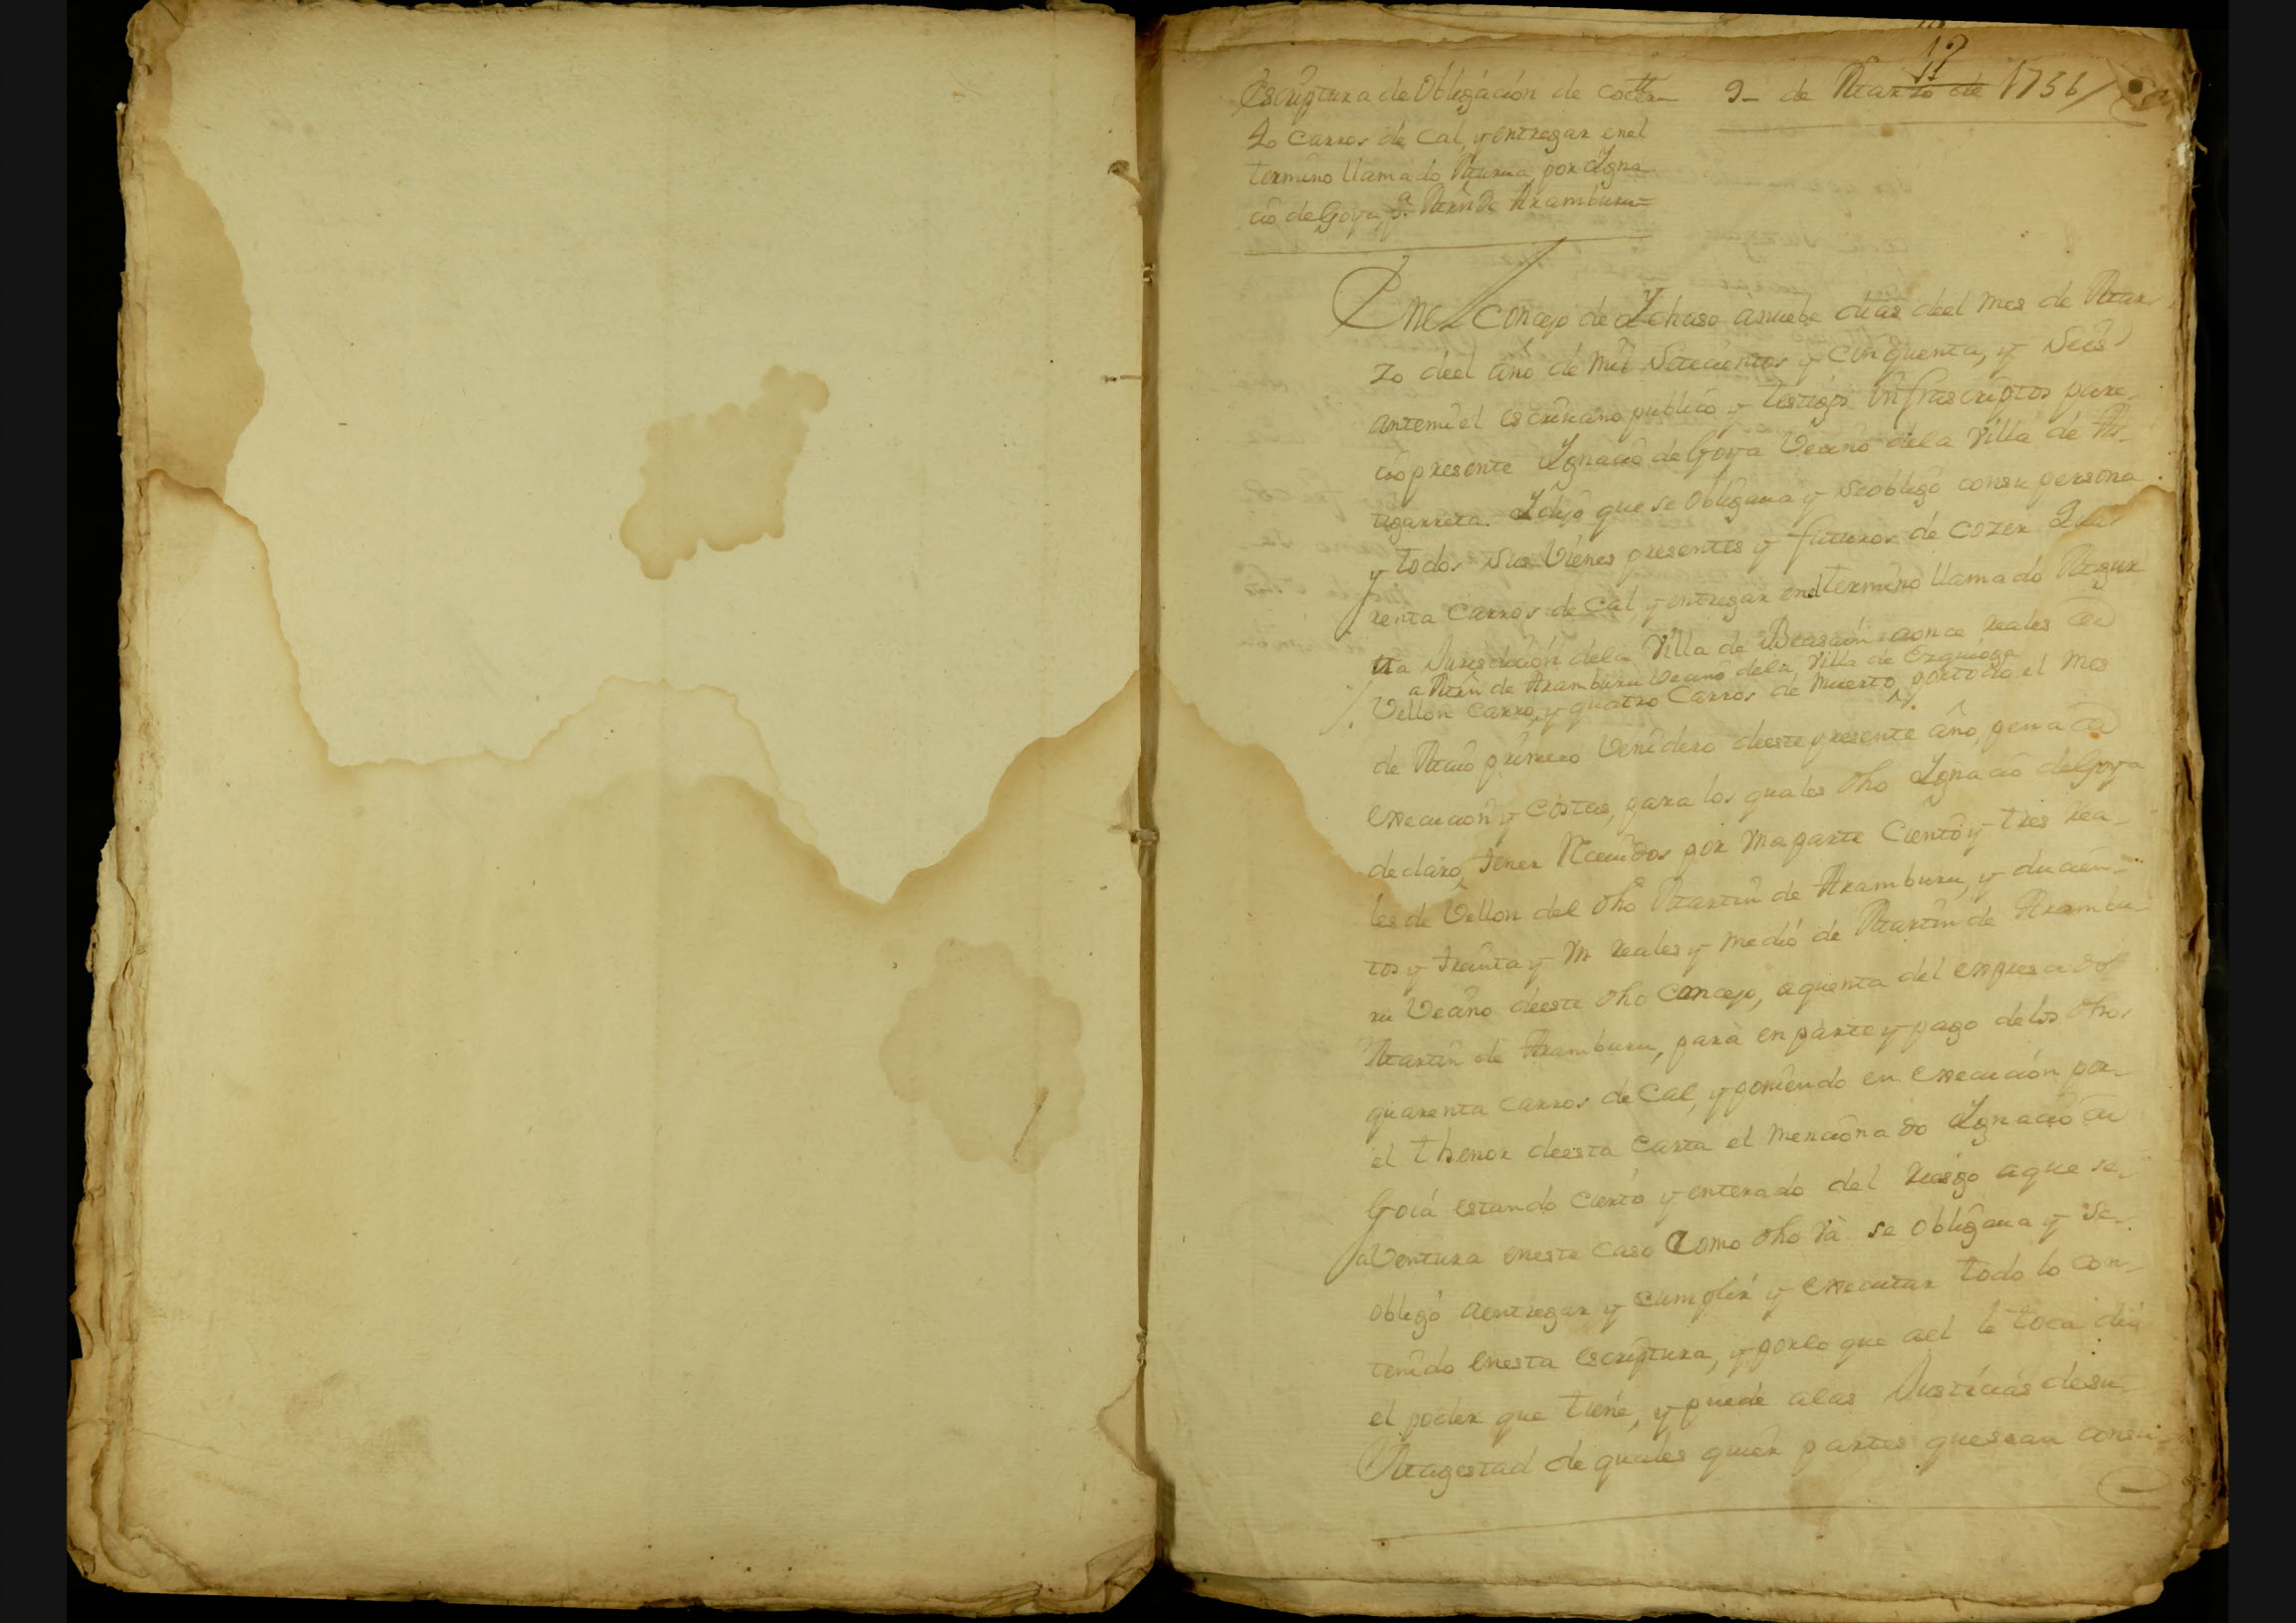 12
11
Escriptura de Obligacion de cocer 9_ de Marzo de 1756/
40 carros de Cal, y entregar enel
termino llamado por Igna
cio de Goya, pª. Mrñ de Aramburu=
Enel Concejo de Ichaso ànuebe dias deel mes de Mar
zo deel año de mil Setecientos y Cinquenta, y Seis
antemi el escrivano publico y testigos infrascriptos pare
cio presente Ignacio de Goya Vecino dela Villa de As_
tigarreta. I dijo que se Obligaua y Seobligo consu persona
y todos sus Vienes presentes y futuros de cozer Qua
renta Carros de Cal, y entregar enel termino llamado
Jurisdicion dela Villa de Beasain aonce reales de
a Mrñ de Aramburu Vecino dela Villa de Ezquioga
Vellon carro, y quatro Carros de muerto, por todo el mes
de Maio primero Venidero deeste presente año, pena de
execucion y costas, para los quales dho Ignacio de Goya
declaro, tener Recividos por Ma parte Ciento y tres rea_
les de Vellon del dho Martin de Aramburu, y ducien_
tos y treinta y Un reales y medio de Martin de Arambu_
ru Vecino deeste dho Concejo, aquenta del expresado
Martin de Aramburu, para en parte y pago delos dhos
quarenta carros de Cal, y poniendo en execucion por_
el thenor deesta Carta el mencionado Ignacio de
Goiá estando cierto y enterado del riesgo aque se_
aVentura eneste caso Como dho và se obligaua y se_
obligó aentregar y cumplir y executar todo lo con_
tenido enesta escriptura, y porlo que ael le toca dió
el poder que tiene, y puede alas Justicias desu
Magestad de quales quier partes quesean